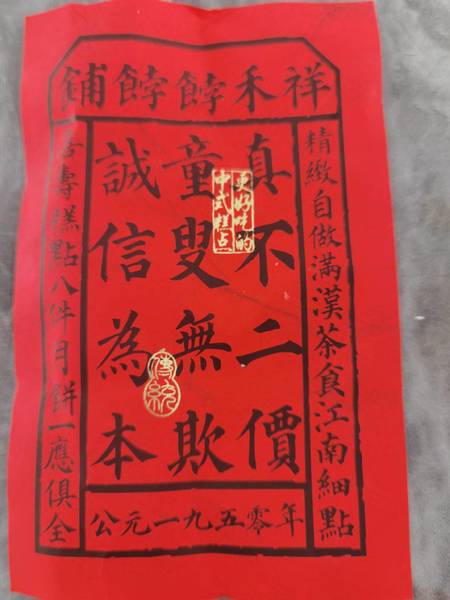 祥禾餑餑鋪
精緻自做滿漢茶食江南細點
真不二價
童叟無欺
誠信為本
喜壽糕點八件月餅一應俱全
公元一九五零年
更好吃的
中式糕点
傳統